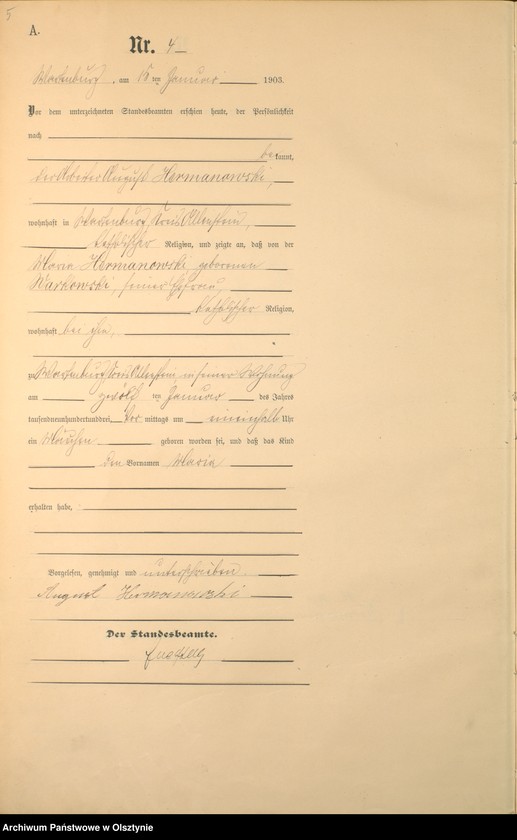 5
A.
Nr. 4
Wartenburg, am 15 ten Januar 1903.
Vor dem unterzeichneten Standesbeamten erschien heute, der Persönlichkeit
nach
bekannt,
der Arbeiter August Hermanowski,
wohnhaft in Wartenburg Kreis Allenstein,
katholischer Religion, und zeigte an, daß von der
Maria Hermanowski geborenen
Warkowski, seiner Ehefrau,
katholischer Religion,
wohnhaft bei ihm,
zu Wartenburg Kreis Allenstein in seiner Wohnung
am zwölf ten Januar des Jahres
tausendneunhundertunddrei, Vor mittags um eineinhalb Uhr
ein Mädchen geboren worden sei, und daß das Kind
den Vornamen Maria
erhalten habe,
Vorgelesen, genehmigt und unterschrieben.
August Hermanowski
Der Standesbeamte.
Archiwum Państwowe w Olsztynie